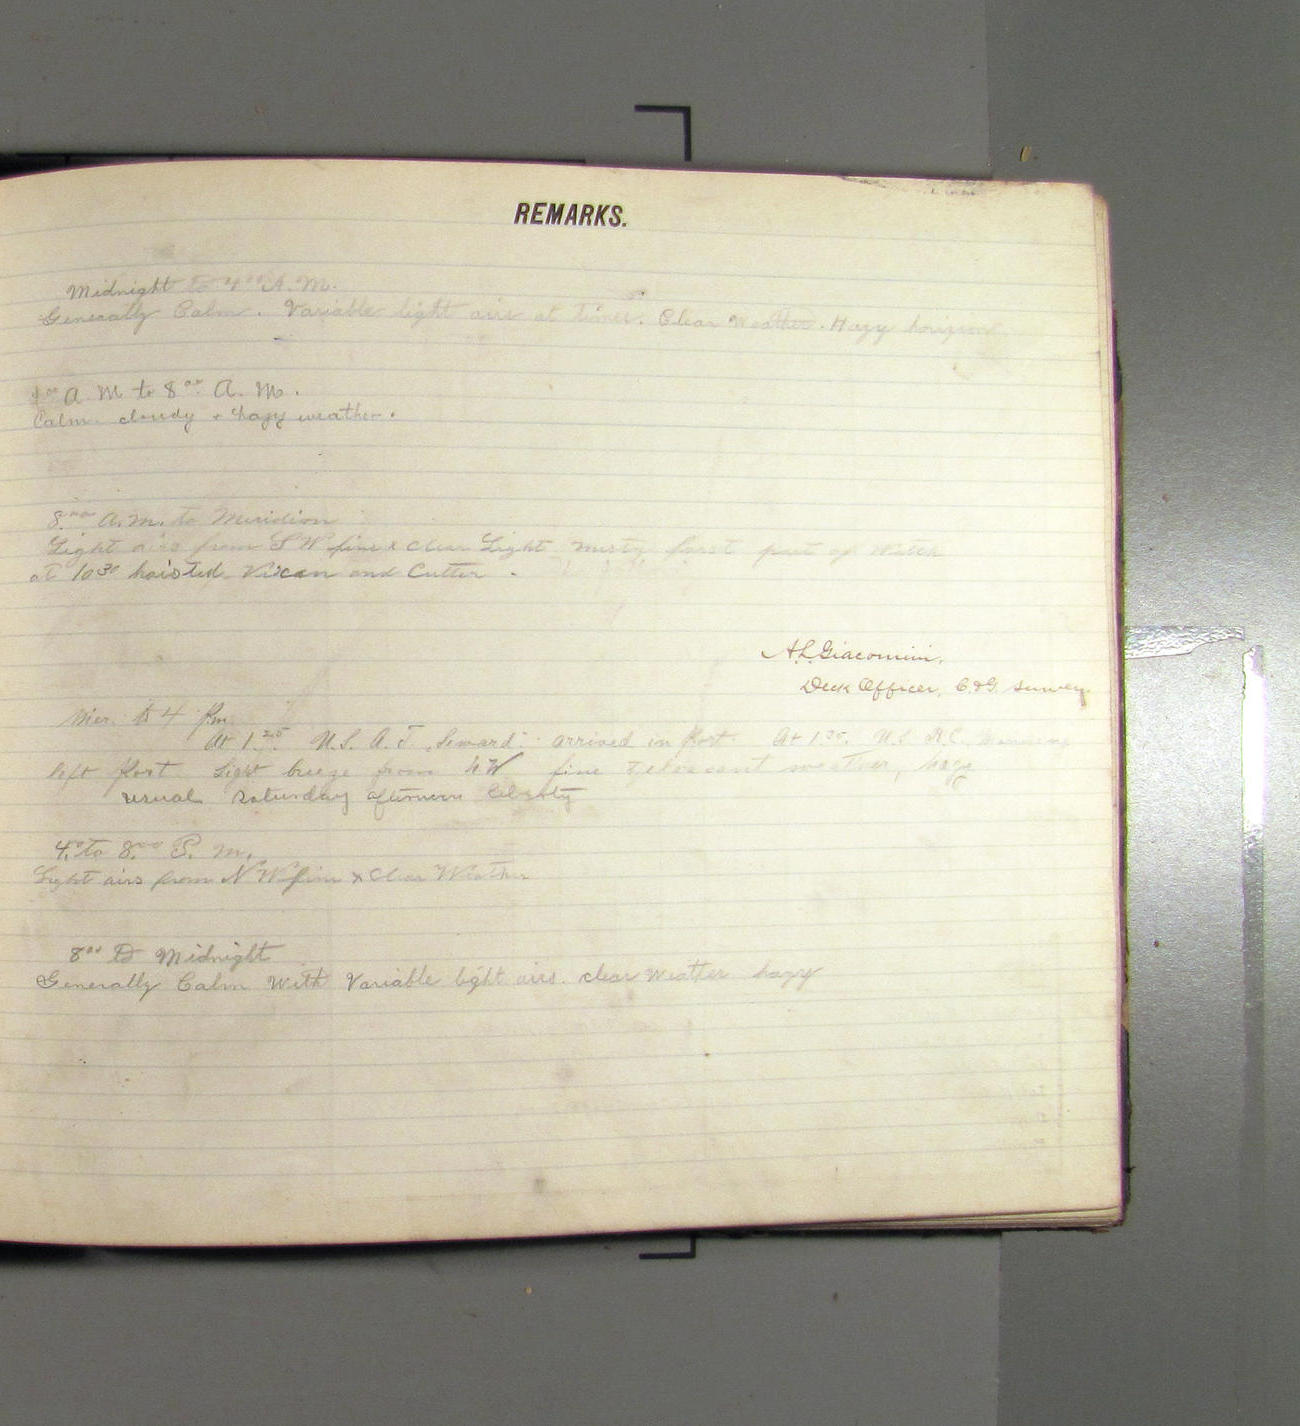 REMARKS.
Midnight to 4⁰⁰ A. M.
Generally Calm. Variable light airs at times. Clear Weather. Hazy horizon
4⁰⁰ A M to 8⁰⁰ A. M.
Calm. cloudy + hazy weather.
8⁰⁰ A.M. to Meridian
Light airs from S W fine & clear Light misty first part of watch
at 10³⁰ hoisted and Cutter.
A.L. Giacomini.
Deck Officer, C.&G. Survey.
Mer. to 4 Pm
At 1.²⁵ U.S. A. T. "Seward" arrived in Port. At U.S.
left Port. Light breeze from NW fine & pleasant weather, hazy
usual Saturday afternoon liberty
4⁰ to 8⁰⁰ P. M.
Light airs from N W fine & Clear Weather
8⁰⁰ to Midnight
Generally Calm with Variable light airs. clear weather hazy